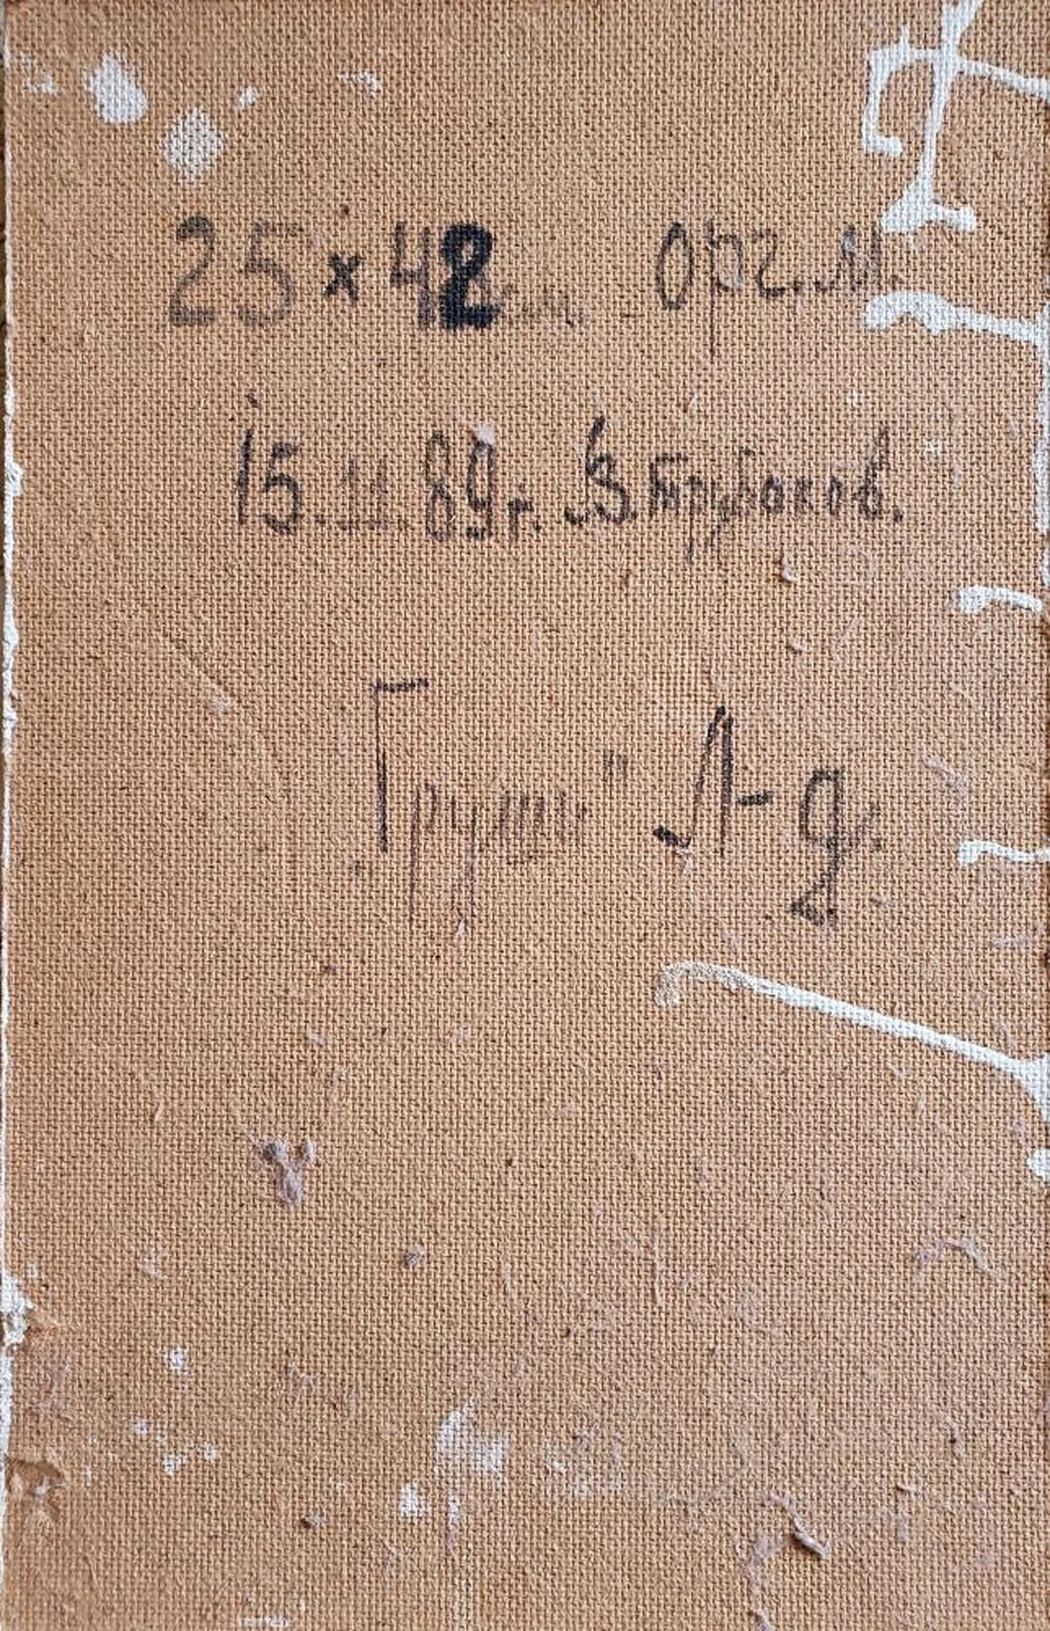 25×42см. Орг.м.
15.11.89г. В.Трубаков.
„Груши" Л-д.